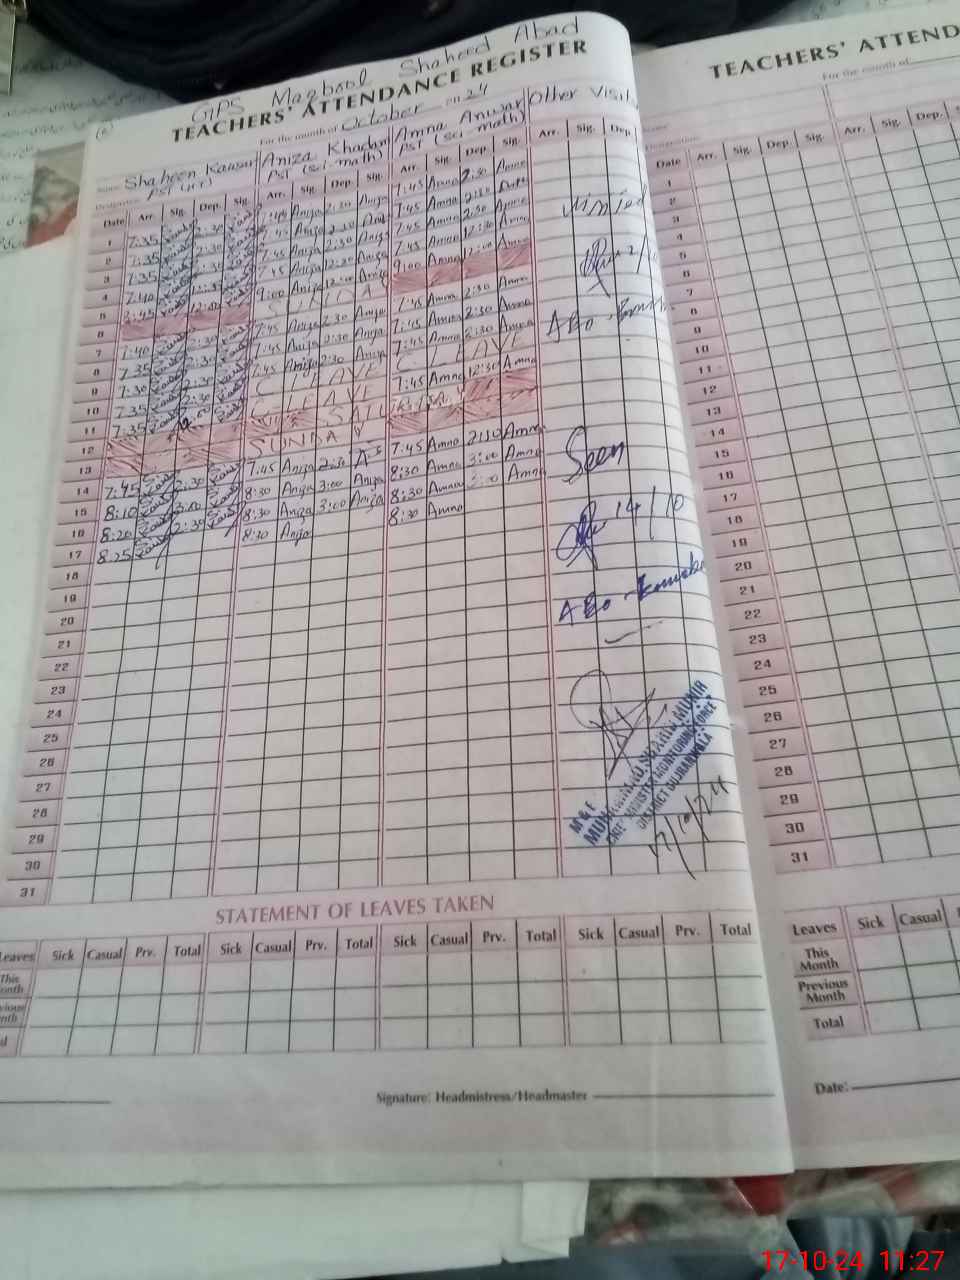 GPS Maqbool Shaheed Abad
TEACHERS' ATTENDANCE REGISTER
For the month of October 2024
Shaheen Kausar Aniza Khadam Amna Anwar Other Visits
PST (sci-math) PST (sci-math)
Date Arr. Sig. Dep. Sig. Arr. Sig. Dep. Sig. Arr. Sig. Dep. Sig. Arr. Sig. Dep.
1 7:35 2:30 7:45 Aniza 2:30 Aniza 7:45 Amna 2:30 Amna
2 7:35 7:45 Aniza 2:30 Aniza 7:45 Amna 2:30 Amna
3 7:35 2:30 7:45 Aniza 2:30 Aniza 7:45 Amna 2:30 Amna
4 7:40 7:45 Aniza 12:30 Aniza 7:45 Amna 12:30 Amna
5 12:00 9:00 Aniza 12:00 Aniza 9:00 Amna 12:00 Amna
6 SUNDAY
7 7:40 2:30 7:45 Aniza 2:30 Aniza 7:45 Amna 2:30 Amna
8 7:35 2:30 7:45 Aniza 2:30 Aniza 7:45 Amna 2:30 Amna
9 7:30 2:30 7:45 Aniza 2:30 Aniza 7:45 Amna 2:30 Amna
10 7:35 2:30 C LEAVE C LEAVE
11 7:35 C LEAVE 7:45 Amna 12:30 Amna
12 SATURDAY
13 SUNDAY
14 7:45 2:30 7:45 Aniza 2:30 7:45 Amna 2:30 Amna
15 8:10 3:00 8:30 Aniza 3:00 Aniza 8:30 Amna 3:00 Amna
16 8:20 2:30 8:30 Aniza 3:00 Aniza 8:30 Amna 3:00 Amna
17 8:25 8:30 Aniza 8:30 Amna
18
19
20
21
22
23
24
25
26
27
28
29
30
31
Visited
AEO
Seen
14/10
AEO
M&E
MUHAMMAD SHAHID MUNIR
CHIEF MINISTER MONITORING FORCE
DISTRICT GUJRANWALA
17/10/24
STATEMENT OF LEAVES TAKEN
Leaves Sick Casual Prv. Total Sick Casual Prv. Total Sick Casual Prv. Total Sick Casual Prv. Total
This Month
Previous Month
Total
Signature: Headmistress/Headmaster
TEACHERS' ATTEND
For the month of
Designation:
Date Arr. Sig. Dep. Sig. Arr. Sig. Dep.
1
2
3
4
5
6
7
8
9
10
11
12
13
14
15
16
17
18
19
20
21
22
23
24
25
26
27
28
29
30
31
Leaves Sick Casual
This Month
Previous Month
Total
Date:
17-10-24 11:27